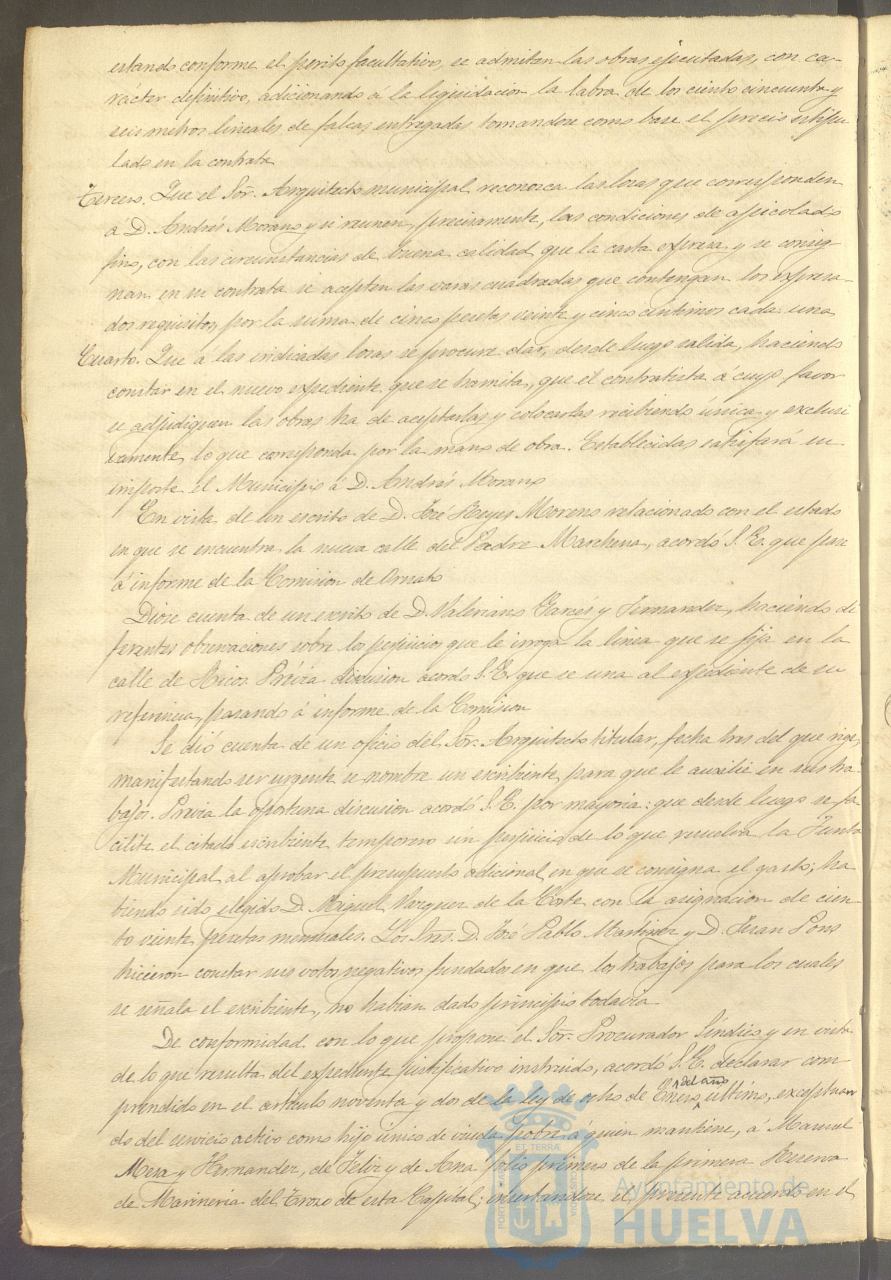 estando conforme el perito facultativo, se admitan las obras ejecutadas, con ca-
rácter definitivo, adicionando á la liquidacion la labra de los ciento cincuenta y
seis metros lineales de falcas entregadas tomandose como base el precio estipu-
lado en la contrata
Tercero. Que el Sor. Arquitecto municipal reconozca las losas que corresponden
a D. Andrés Morano y si reunen, precisamente, las condiciones de apicolado
fino, con las circunstancias de buena calidad que la carta expresa y se consig-
nan en su contrata se acepten las varas cuadradas que contengan los expresa-
dos requisitos, por la suma de cinco pesetas veinte y cinco centimos cada una
Cuarto. Que á las indicadas losas se procure dar, desde luego salida, haciendo
constar en el nuevo expediente que se tramita, que el contratista á cuyo favor
se adjudiquen las obras ha de aceptarlas y colocarlas recibiendo única y exclusi
vamente, lo que corresponda por la mano de obra. Establecidas satisfará su
importe el Municipio á D. Andrés Morano
En vista de un escrito de D. José Reyes Moreno relacionado con el estado
en que se encuentra la nueva calle del Padre Marchena, acordó S. E. que pase
á informe de la Comision de Ornato
Diose cuenta de un escrito de D. Valeriano Garcés y Fernandez, haciendo di
ferentes observaciones sobre los perjuicios que le irroga la linea que se fija en la
calle de Ricos. Prévia discusion acordó S. E. que se una al expediente de su
referencia, pasando á informe de la Comision
Se dió cuenta de un oficio del Sor. Arquitecto titular, fecha tres del que rige,
manifestando ser urgente se nombre un escribiente, para que le auxilie en sus tra
bajos. Previa la oportuna discusion acordó S. E. por mayoria: que desde luego se fa
cilite el citado escribiente temporero sin perjuicio de lo que resuelva la Junta
Municipal al aprobar el presupuesto adicional en que se consigna el gasto; ha
biendo sido elegido D. Miguel Vazquez de la Corte con la asignacion de cien-
to veinte pesetas mensuales. Los Sres. D. José Pablo Martinez y D. Juan Pons
hicieron constar sus votos negativos fundados en que los trabajos para los cuales
se señala el escribiente, no habian dado principio todavia
De conformidad con lo que propone el Sor. Procurador Síndico y en vista
de lo que resulta del expediente justificativo instruido, acordó S. E. declarar com-
prendido en el articulo noventa y dos de la ley de ocho de Enero del año ultimo, exceptuan
do del servicio activo como hijo único de viuda pobre á quien mantiene, á Manuel
Mesa y Hernandez, de Felix y de Ana folio primero de la primera Reserva
de Marineria del Trozo de esta Capital; insertandose el presente acuerdo en el
Ayuntamiento de
HUELVA